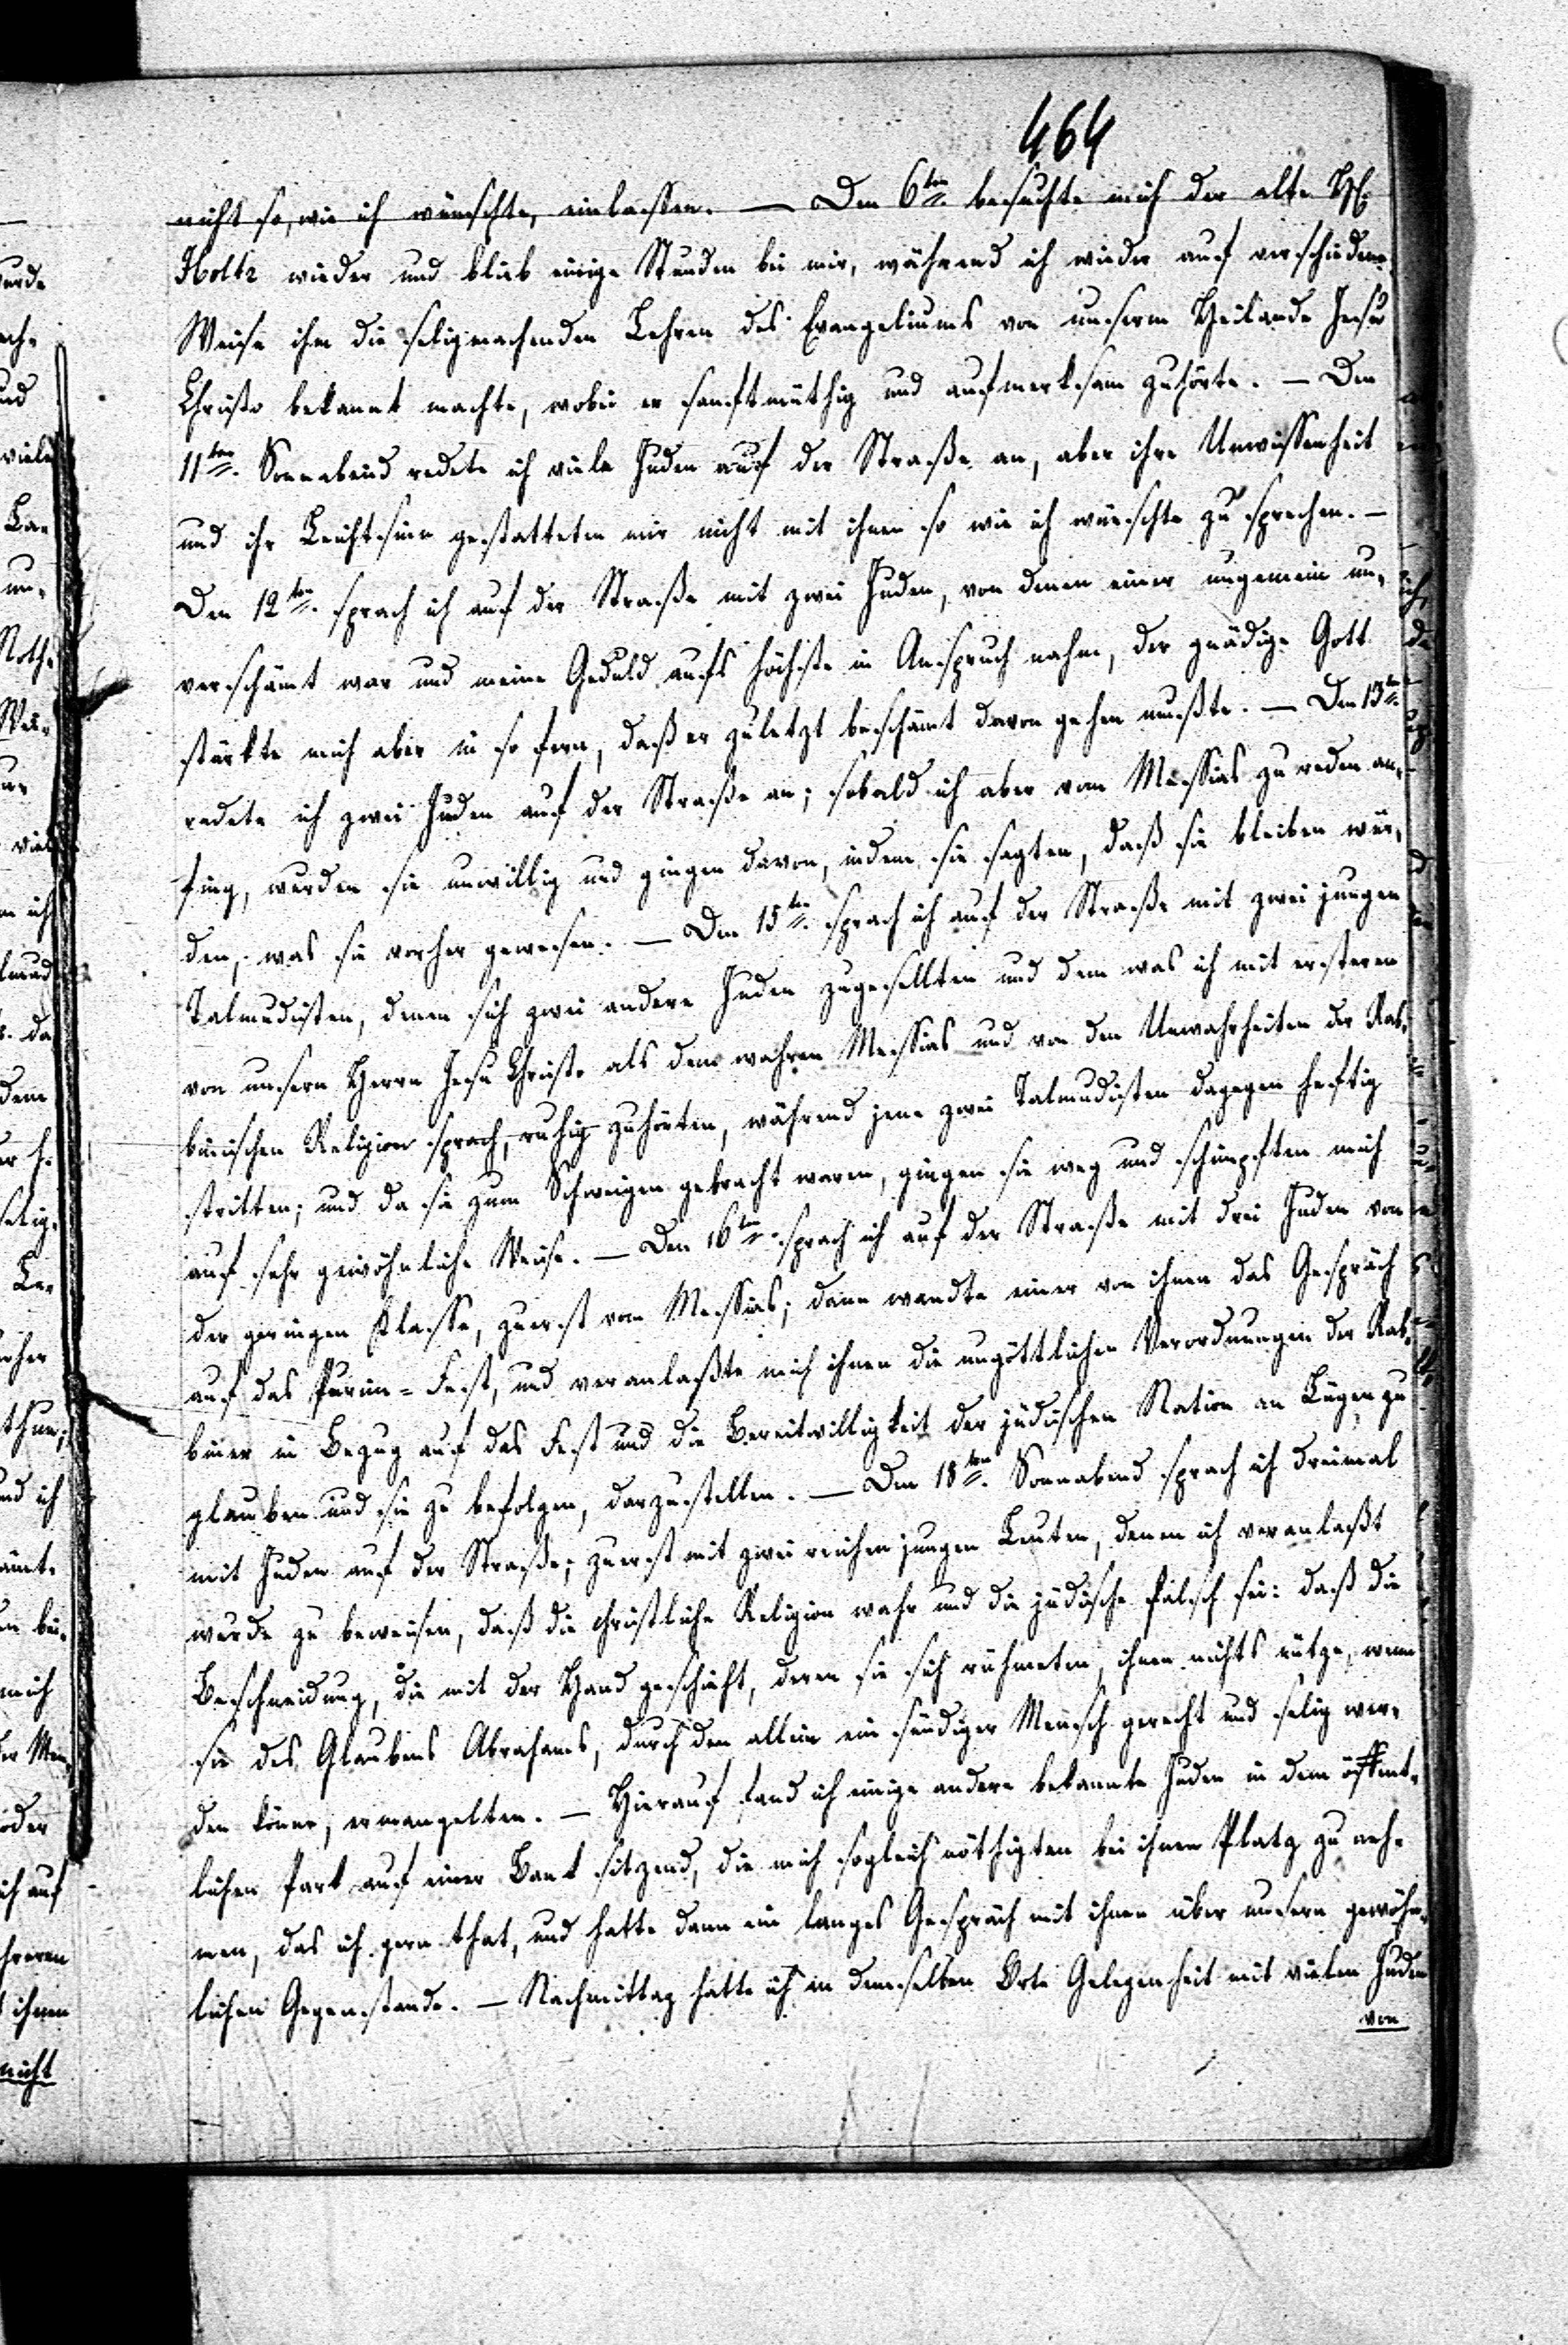 464
nicht so, wie ich wünschte, einlassen. — Den 6ten besuchte mich der alte H.
Holtz wieder und blieb einige Stunden bei mir, während ich wieder auf verschiedene
Weise ihm die seligmachenden Lehren des Evangeliums von unserm Heilande Jesu
Christo bekannt machte, wobei er sanftmüthig und aufmerksam zuhörte. — Den
11ten Sonnabend redete ich viele Juden auf der Straße an, aber ihre Unwissenheit
und ihr Leichtsinn gestatteten mir nicht mit ihnen so wie ich wünschte zu sprechen. —
Den 12ten sprach ich auf der Straße mit zwei Juden, von denen einer ungemein un-
verschämt war und meine Geduld aufs höchste in Anspruch nahm, der gnädige Gott
stärkte mich aber in so fern, daß er zuletzt beschämt davon gehen mußte. — Den 13ten
redete ich zwei Juden auf der Straße an; sobald ich aber vom Messias zu reden an-
fing, wurden sie unwillig und gingen davon, indem sie sagten, daß sie bleiben wür-
den, was sie vorher gewesen. — Den 15ten sprach ich auf der Straße mit zwei jungen
Talmudisten, denen sich zwei andere Juden zugesellten und dem was ich mit ersteren
von unserm Herrn Jesu Christo als dem wahren Messias und von den Unwahrheiten der Rab-
binischen Religion sprach, ruhig zuhörten, während jene zwei Talmudisten dagegen heftig
stritten; und da sie zum Schweigen gebracht waren, gingen sie weg und schimpften mich
auf sehr gewöhnliche Weise. — Den 16ten sprach ich auf der Straße mit drei Juden von
der geringen Klasse, zuerst vom Messias; dann wandte einer von ihnen das Gespräch
auf das Purim-Fest, und veranlaßte mich ihnen die ungöttlichen Verordnungen der Rab-
biner in Bezug auf das Fest und die Bereitwilligkeit der jüdischen Nation an Lügen zu
glauben und sie zu befolgen, darzustellen. — Den 18ten Sonnabend sprach ich dreimal
mit Juden auf der Straße; zuerst mit zwei reichen jungen Leuten, denen ich veranlaßt
wurde zu beweisen, daß die christliche Religion wahr und die jüdische falsch sei: daß die
Beschneidung, die mit der Hand geschieht, deren sie sich rühmeten, ihnen nichts nütze, wenn
sie des Glaubens Abrahams, durch den allein ein sündiger Mensch gerecht und selig wer-
den könne, ermangelten. — Hierauf fand ich einige andere bekannte Juden in dem öffent-
lichen Park auf einer Bank sitzend, die mich sogleich nöthigten bei ihnen Platz zu neh-
men, das ich gern that, und hatte dann ein langes Gespräch mit ihnen über unsern gewöhn-
lichen Gegenstande. — Nachmittag hatte ich in demselben Orte Gelegenheit mit vielen Juden
von